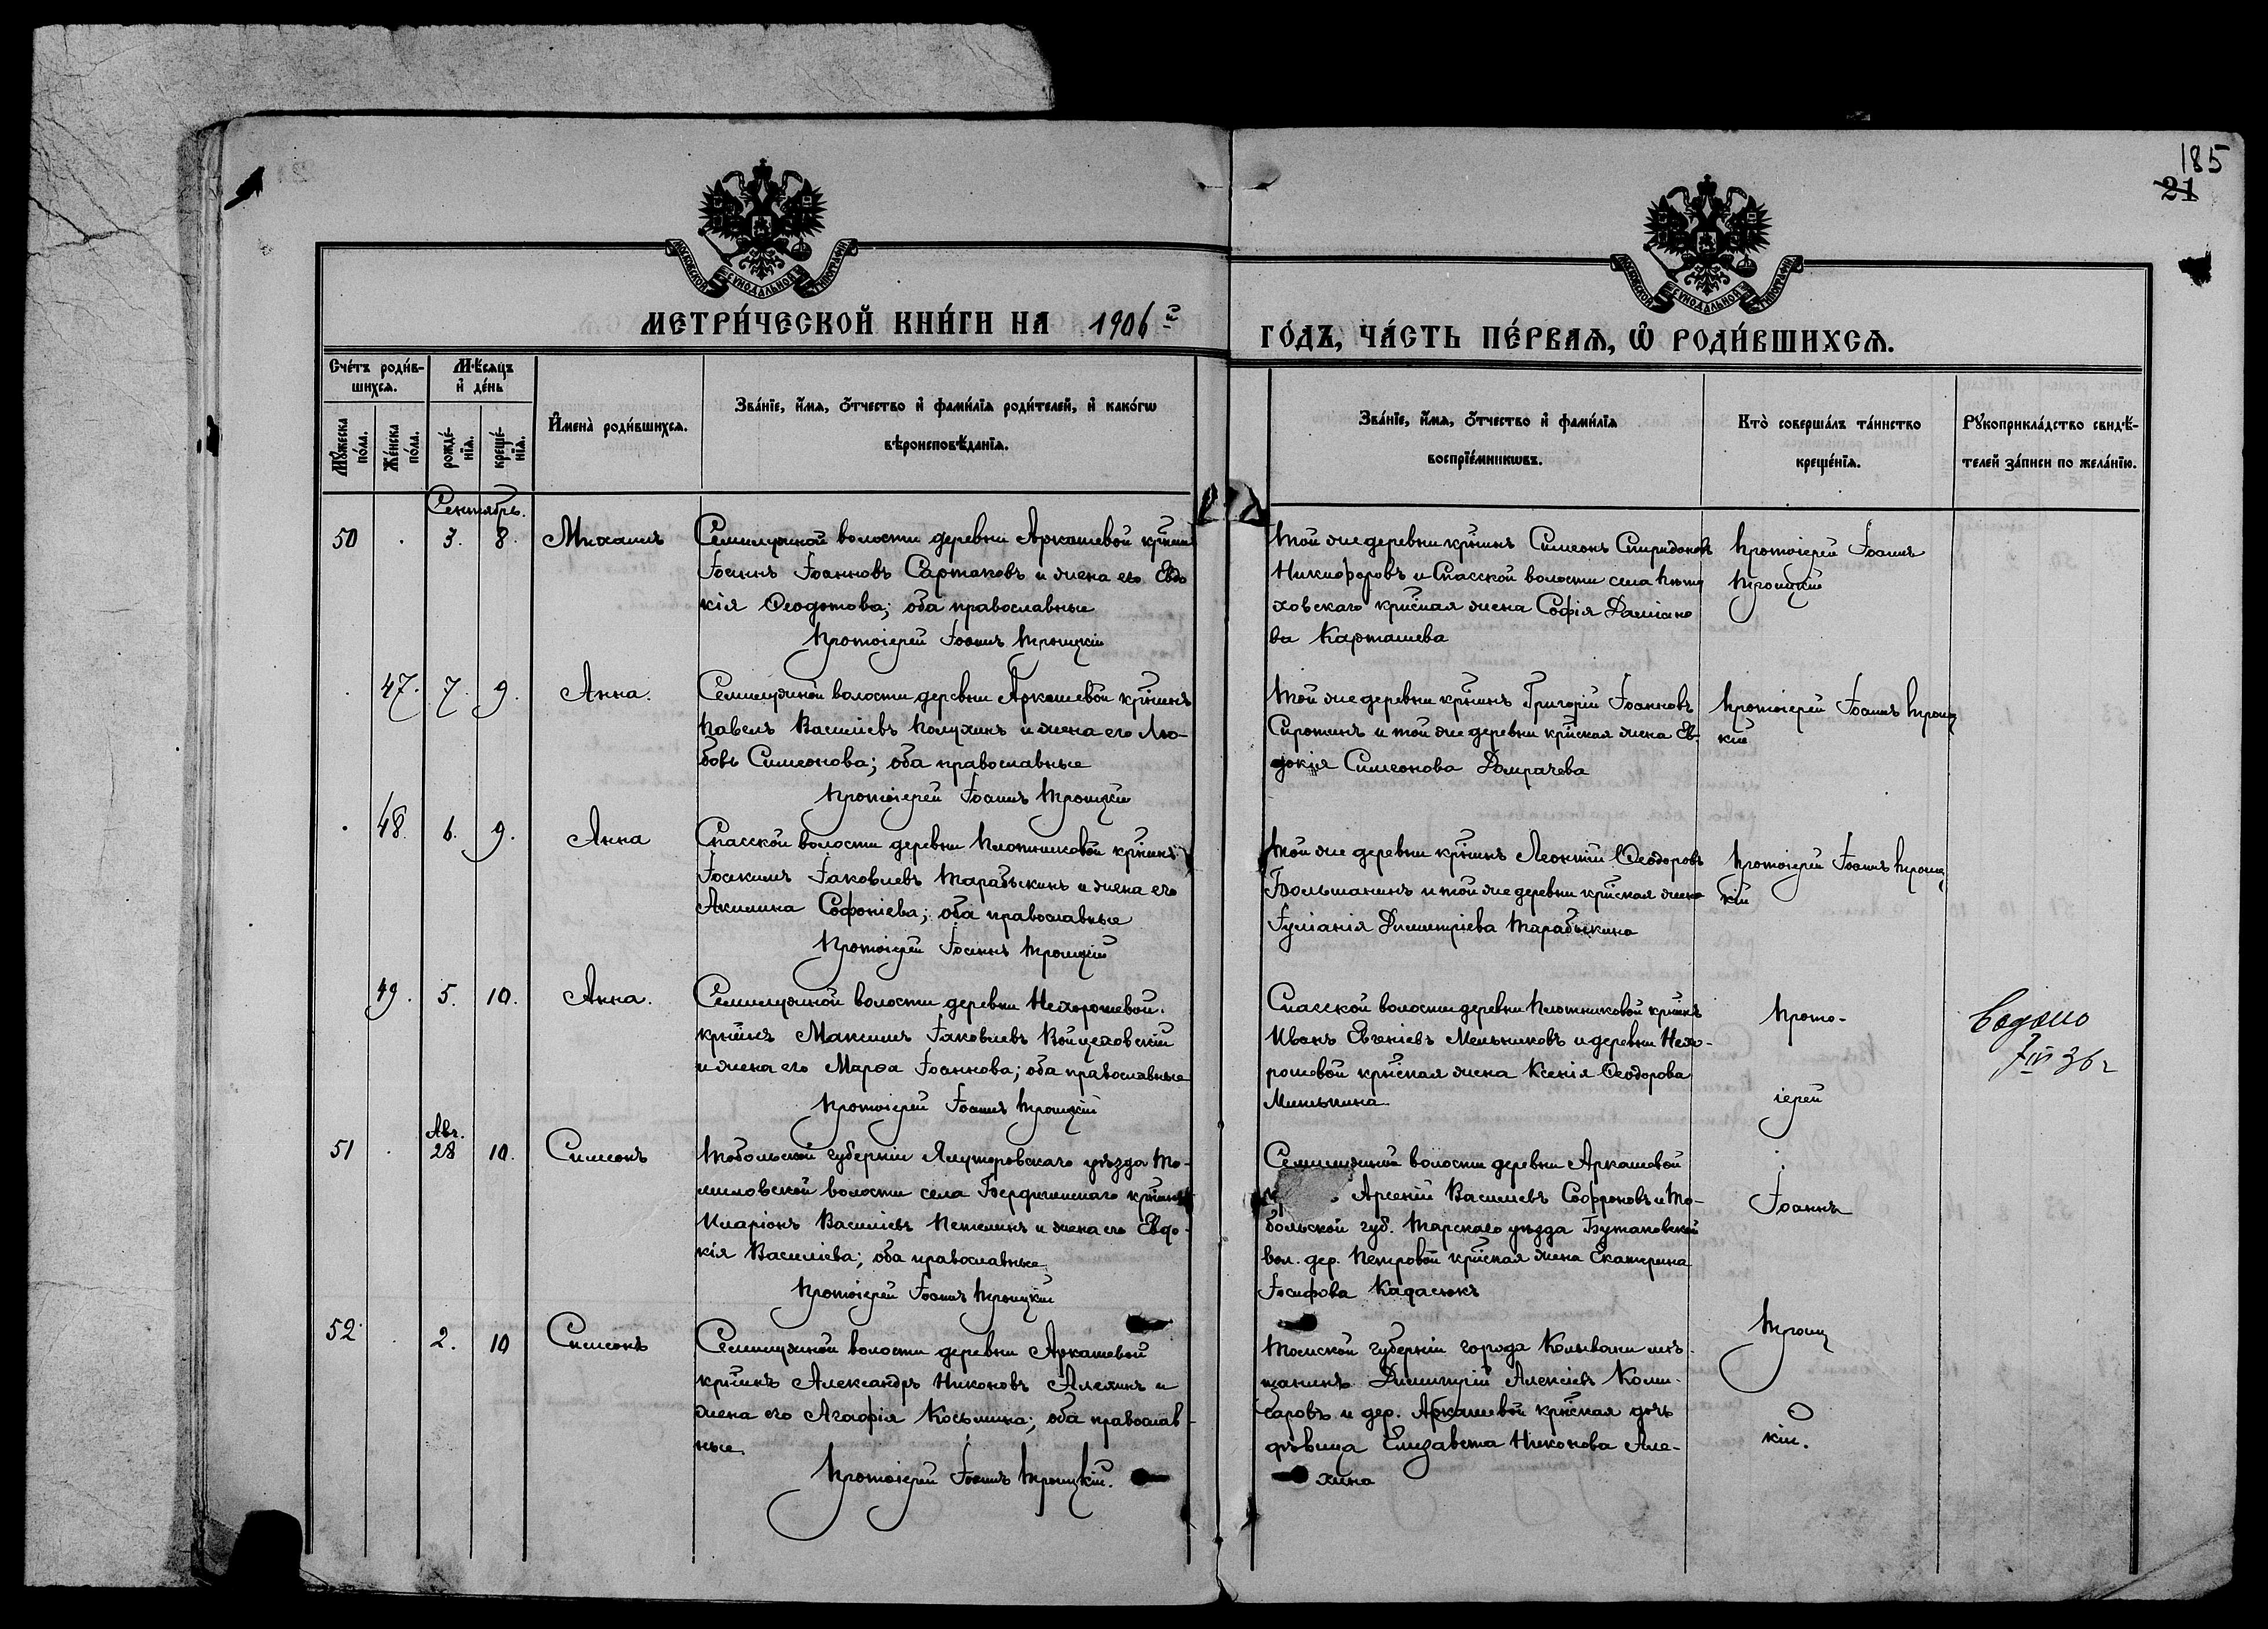 185
21
МОСКОВСКОЙ СѴНОДАЛЬНОЙ ТИПОГРАФІИ
МОСКОВСКОЙ СѴНОДАЛЬНОЙ ТИПОГРАФІИ
МЕТРИ́ЧЕСКОЙ КНИ́ГИ НА 1906й
ГО́ДЪ, ЧА́СТЬ ПЕ́РВАѦ, Ѡ҆ РОДИ́ВШИХСѦ.
Сче́тъ роди́в-
шихсѧ.
Мꙋ́жеска
по́ла.
Же́нска
по́ла.
Мѣ́сѧцъ
и҆ де́нь
рожде́-
нїѧ.
креще́-
нїѧ.
И҆мена̀ роди́вшихсѧ.
Зва́нїе, и҆́мѧ, ѻ҆́тчество и҆ фами́лїѧ роди́телей, и҆ како́гѡ
вѣроисповѣ́данїѧ.
Зва́нїе, и҆́мѧ, ѻ҆́тчество и҆ фами́лїѧ
воспрїе́мникѡвъ.
Кто̀ соверша́лъ та́инство
креще́нїѧ.
Рꙋкоприкла́дство свидѣ́-
телей за́писи по жела́нїю.
Сентябрь.
50 . 3. 8. Михаилъ
Семилужной волости деревни Аркашевой кр̃нинъ
Іоаннъ Іоанновъ Сартаковъ и жена его Евдо
кія Ѳеодотова; оба православные
Протоіерей Іоаннъ Троицкій
Той же деревни кр̃нинъ Симеонъ Спиридоновъ
Никифоровъ и Спасской волости села
ховскаго кр̃нская жена Софія Даміано
ва Карташева
Протоіерей Іоаннъ
Троицкій
. 47. 7. 9. Анна.
Семилужной волости деревни Аркашевой кр̃нинъ
Павелъ Василіевъ Полухинъ и жена его Лю-
бовь Симеонова; оба православные
Протоіерей Іоаннъ Троицкій
Той же деревни кр̃нинъ Григорій Іоанновъ
Сиротинъ и той же деревни кр̃нская жена Ев-
докія Симеонова Домрачева
Протоіерей Іоаннъ Троиц
кій
. 48. 6. 9. Анна
Спасской волости деревни Плотниковой кр̃нинъ
Іоакимъ Іаковлевъ Тарабыкинъ и жена его
Акилина Софоніева; оба православные
Протоіерей Іоаннъ Троицкій
Той же деревни кр̃нинъ Леонтій Ѳеодоровъ
Большанинъ и той же деревни кр̃нская жена
Іуліанія Димитріева Тарабыкина
Протоіерей Іоаннъ Троиц
кій
49. 5. 10. Анна.
Семилужной волости деревни Нехорошевой
кр̃нинъ Максимъ Іаковлевъ Войцеховскій
и жена его Марѳа Іоаннова; оба православные
Протоіерей Іоаннъ Троицкій
Спасской волости деревни Плотниковой кр̃нинъ
Иванъ Евгеніевъ Мельниковъ и деревни Нехо-
рошевой кр̃нская жена Ксенія Ѳеодорова
Минькина
Прото-
іерей
7 IV 36 г
Авг.
51 . 28 10. Симеонъ
Тобольской губерніи Ялуторовскаго уѣзда То-
миловской волости села Бердюгинскаго кр̃нинъ
Иларіонъ Василіевъ Петелинъ и жена его Евдо-
кія Василіева; оба православные
Протоіерей Іоаннъ Троицкій
Семилужной волости деревни Аркашевой
Арсеній Василіевъ Софроновъ и То-
больской губ. Тарскаго уѣзда Бутаковской
вол. дер. Петровой кр̃нская жена Екатерина
Іосифова Кадасюкъ
Іоаннъ
52. . 2. 10 Симеонъ
Семилужной волости деревни Аркашевой
кр̃нинъ Александръ Никоновъ Алехинъ и
жена его Агафія Косьмина; оба православ-
ные
Протоіерей Іоаннъ Троицкій.
Томской губерніи города Колывани мѣ-
щанинъ Димитрій Алексіевъ Коми-
саровъ и дер. Аркашевой кр̃нская дочь
дѣвица Елизавета Никонова Але-
хина
Троиц
кій.